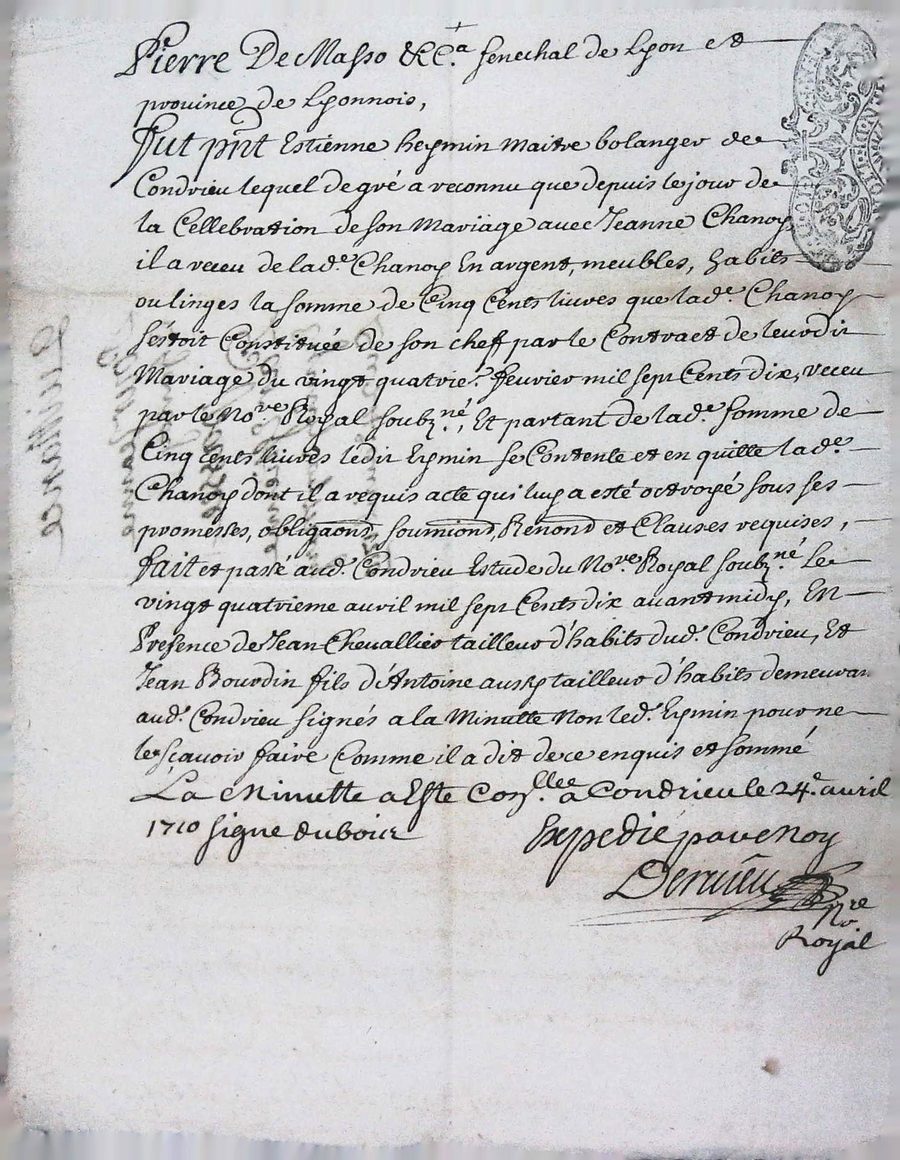 Pierre De Masso &C.a senechal de Lyon et
province de Lyonnois,
Fut pnt Estienne heymin Maitre bolanger de
Condrieu lequel de gré a reconnu que depuis le jour de
la Cellebration de son Mariage avec Jeanne Chanoy
il a receu de lad.e Chanoy En argent, meubles, habits
ou linges la somme de Cinq Cents livres que lad.e Chanoy
s'éstoit Constituée de son chef par le Contract de leurdit
Mariage du vingt quatrie.e fevrier mil sept Cents dix, receu
par le No.re Royal soubz.né, Et partant de lad.e somme de
Cinq cents livres ledit Eymin se Contente et en quitte lad.e
Chanoy dont il a requis acte qui luy a esté octroyé sous ses
promesses, obligaons, soumions, Renons et Clauses requises,
fait et passé aud. Condrieu Estude du No.re Royal soubz.né Le
vingt quatrieme avril mil sept Cents dix avant midy, En
Presence de Jean Chevallier tailleur d'habits dud. Condrieu, Et
Jean Bourdin fils d'Antoine aussy tailleur d'habits demeuran
aud. Condrieu signés a la Minutte Non led. Eymin pour ne
le sçavoir faire Comme il a dit de ce enquis et sommé
La Minutte a Este Con.llee a Condrieu le 24.e avril
1710 signe duboir
Expedié par e Noy
Dervieu
No.re
Royal
Quittance